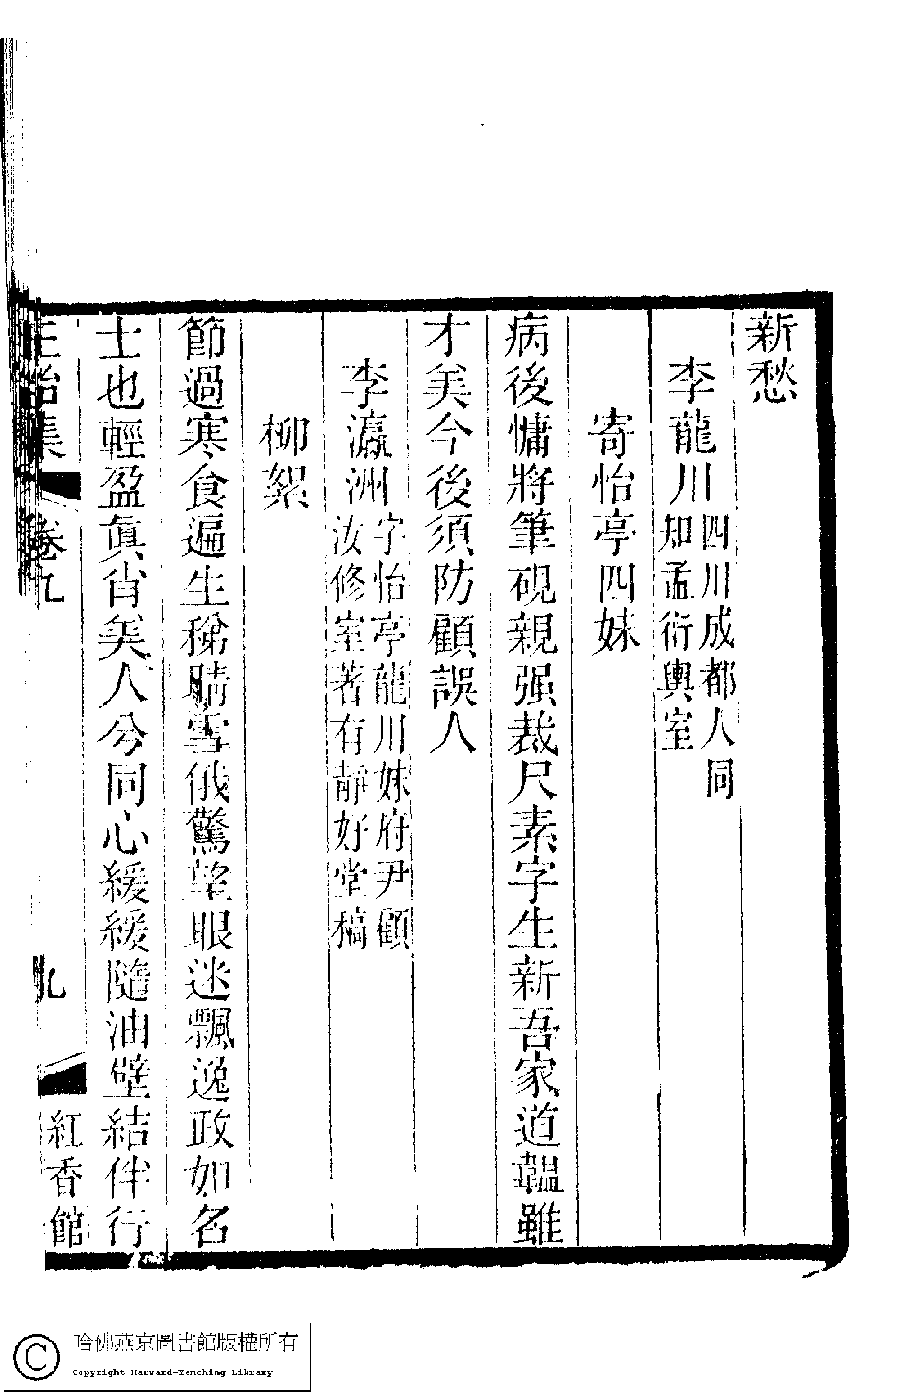 新愁
李龍川四川成都人同
知孟衍輿室
寄怡亭四妹
病後慵將筆硯親强裁尺素字生新吾家道韞雖
才美今後須防顧誤人
李瀛洲字怡亭龍川妹府尹顧
汝修室著有靜好堂稿
柳絮
節過寒食遍生稊晴雪俄驚望眼迷飄逸政如名
士也輕盈眞肖美人兮同心緩緩隨油壁結伴行
正始集 卷九 九 紅香館
哈佛燕京圖書館版權所有
Copyright Harvard-Yenching Library